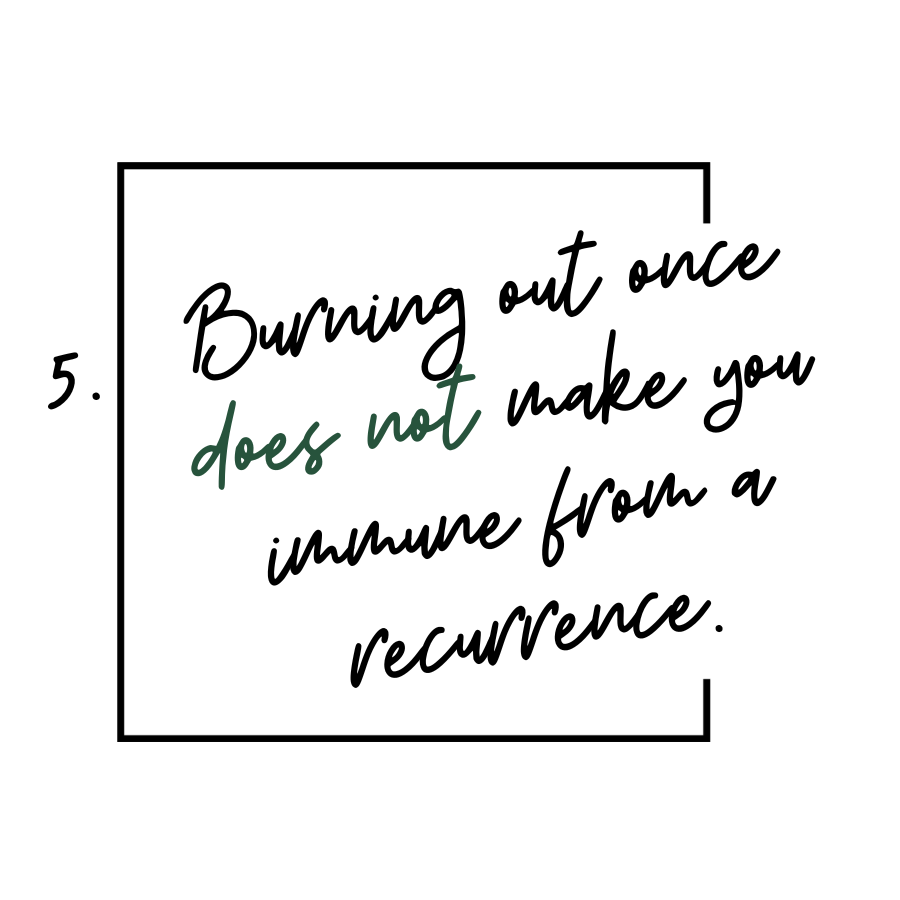 5.
Burning out once
does not make you
immune from a
recurrence.